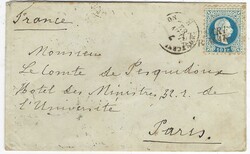 France
Monsieur
Le Comte de Pesquidoux
Hotel des Ministres, 32. r. de
l'Université
Paris.